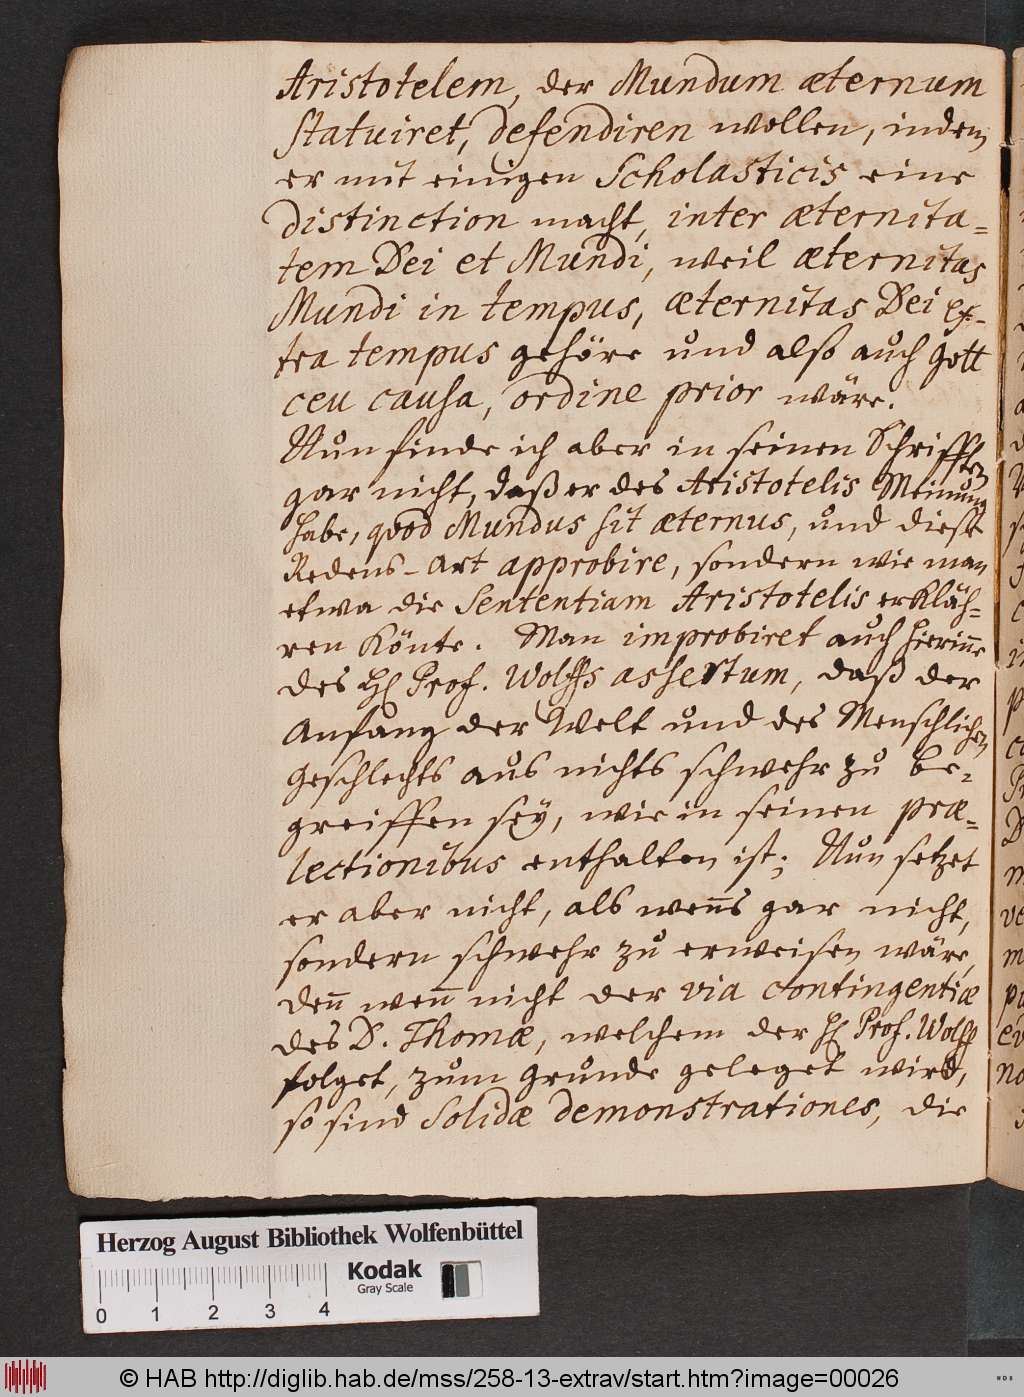 Aristotelem, der Mundum æternum
statuiret, defendiren wollen, indem
er mit einigen Scholasticis eine
distinction macht, inter æternita=
tem Dei et Mundi, weil æternitas
Mundi in tempus, æternitas Dei ex=
tra tempus gehöre und also auch Gott
ceu causa, ordine prior wäre.
Nun finde ich aber in seinen Schrifften
gar nicht, daß er des Aristotelis Meinung
habe, qvod Mundus sit æternus, und diese
Redens-Art approbire, sondern wie man
etwa die Sententiam Aristotelis erkläh=
ren könte. Man improbiret auch hierinne
des H. Prof. Wolffs assertum, daß der
Anfang der Welt und des Menschlichen
Geschlechts aus nichts schwehr zu be=
greiffen sey, wie in seinen præ=
lectionibus enthalten ist; Nun setzet
er aber nicht, als wen̅s gar nicht,
sondern schwehr zu erweisen wäre,
den̅ wen̅ nicht der via contingentiæ
des D. Thomæ, welchem der H. Prof. Wolff
folget, zum Grunde geleget wird,
so sind Solidæ demonstrationes, die
Herzog August Bibliothek Wolfenbüttel
Kodak
Gray Scale
0 1 2 3 4
© HAB http://diglib.hab.de/mss/258-13-extrav/start.htm?image=00026